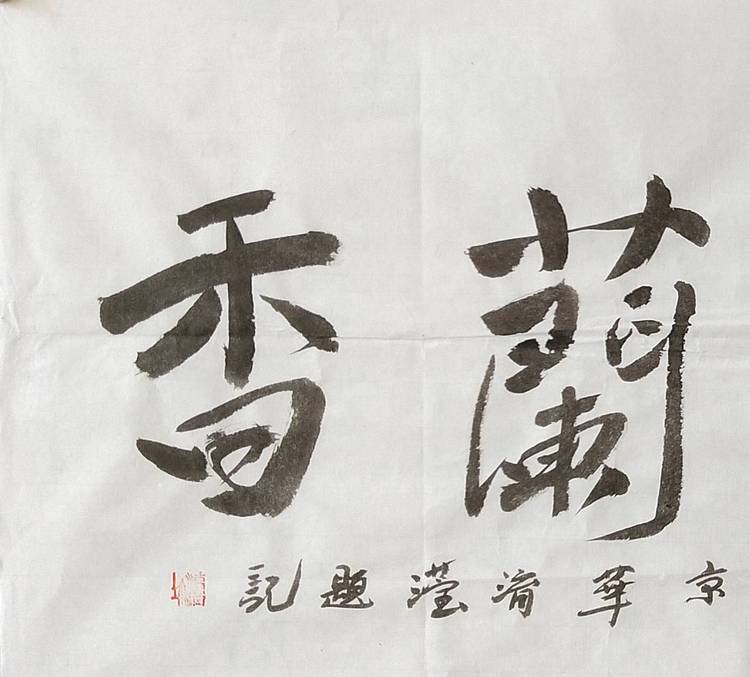 蘭香
京華淯瀅題記